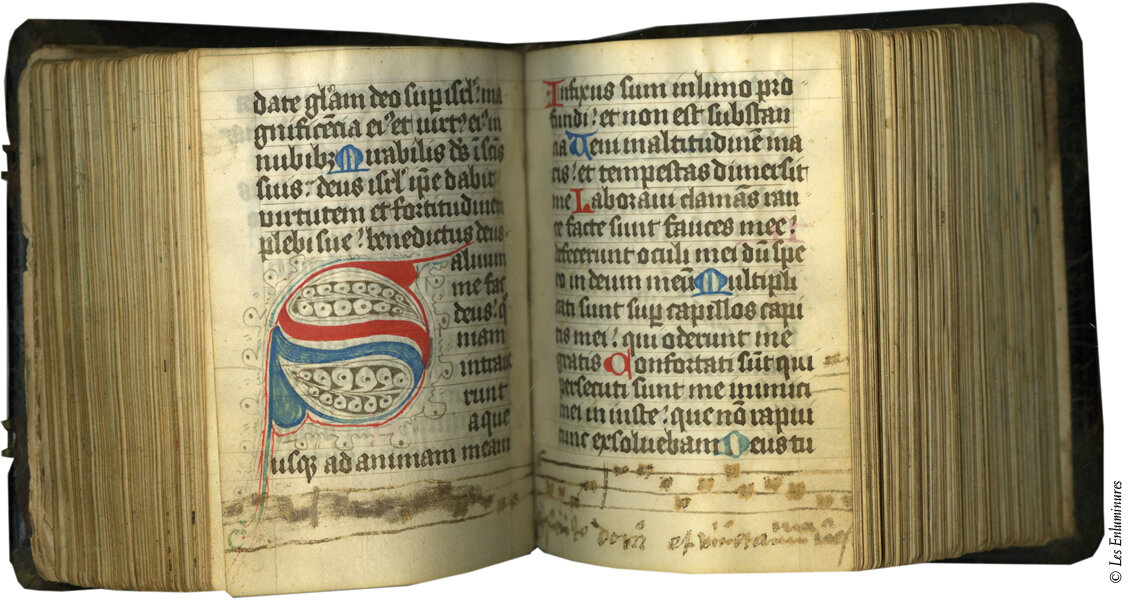 date gl'am deo sup isrl' ma
gnificẽcia ei' et uirt' ei' in
nubibz Mirabilis ds ĩ scis
suis: deus isrl' ip̃e dabit
virtutem et fortitudinem
plebi sue: benedictus deus
Saluum
me fac
deus: q̃
niam
intraue
runt
aque
usq; ad animam meam
Infixus sum in limo pro
fundi: et non est substan
cia Veni in altitudinẽ ma
ris: et tempestas dimersit
me Laboraui clamãs rau
ce facte sunt fauces mee:
defecerunt oculi mei dũ spe
ro in deum meũ Multipli
cati sunt sup capillos capi
tis mei: qui oderunt me
gratis Confortati sũt qui
persecuti sunt me inimici
mei in iuste: que nõ rapui
tunc exsoluebam Deus tu
© Les Enluminures